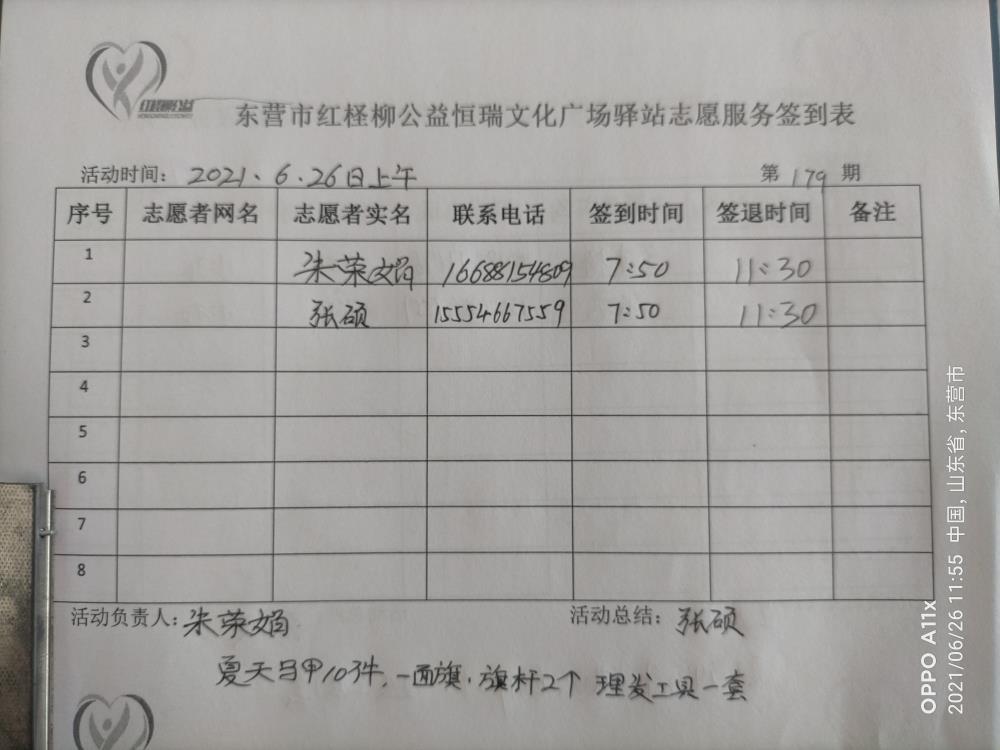 红柽柳公益
东营市红柽柳公益恒瑞文化广场驿站志愿服务签到表
活动时间：2021、6.26日上午 第179期
序号 志愿者网名 志愿者实名 联系电话 签到时间 签退时间 备注
1 朱荣娟 16688154809 7:50 11:30
2 张硕 15554667559 7:50 11:30
3
4
5
6
7
8
活动负责人：朱荣娟 活动总结：张硕
夏天马甲10件，一面旗，旗杆2个 理发工具一套
OPPO A11x
2021/06/26 11:55 中国, 山东省, 东营市